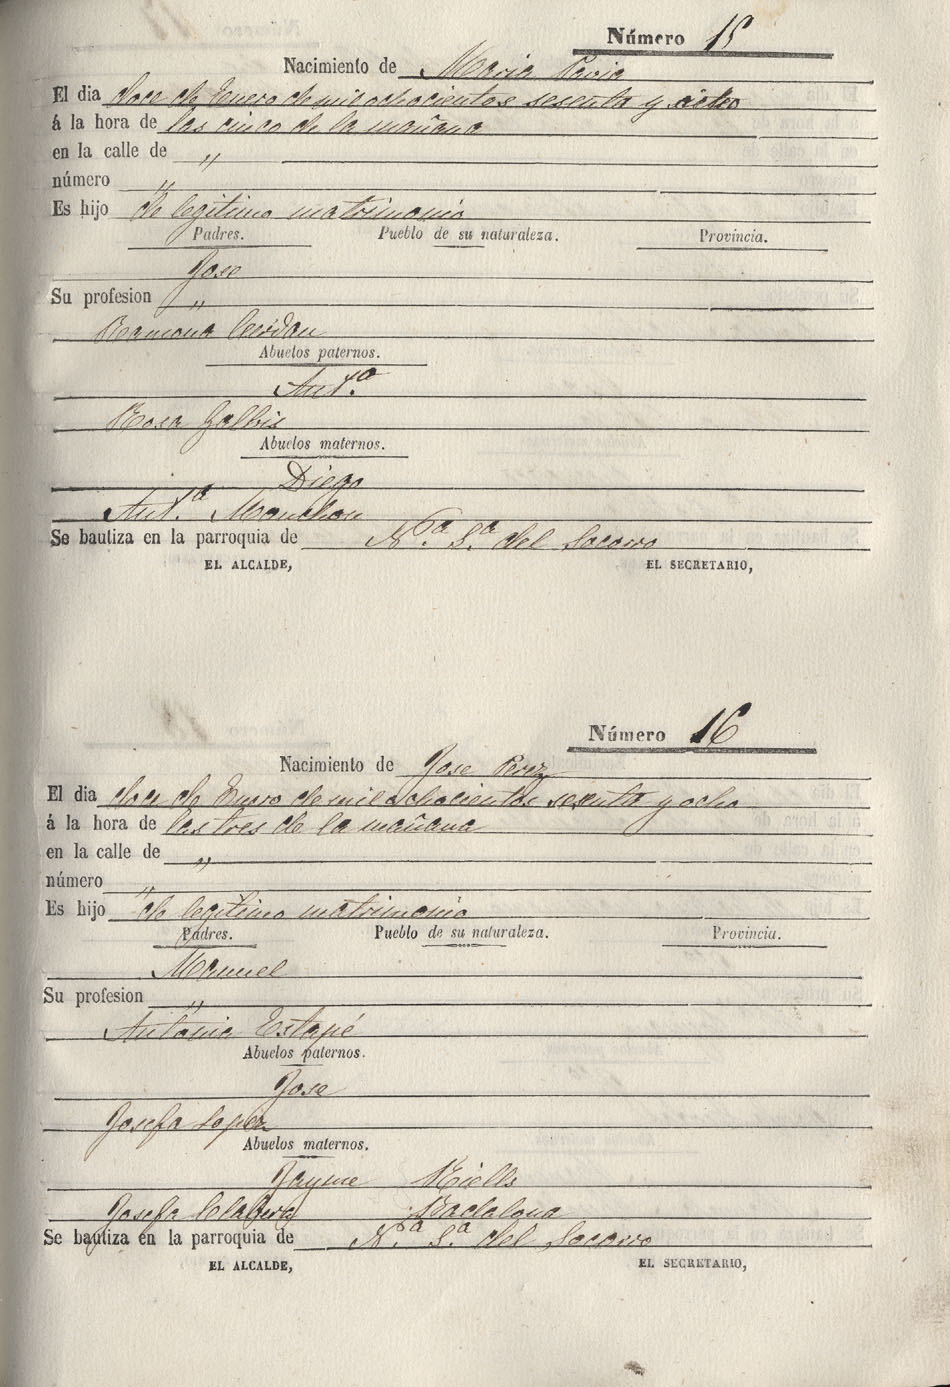 Número 15
Nacimiento de Maria Pavia
El dia doce de Enero de mil ochocientos sesenta y ocho
á la hora de las cinco de la mañana
en la calle de "
número "
Es hijo de legitimo matrimonio
Padres. Pueblo de su naturaleza. Provincia.
Jose
Su profesion "
Ramona Cerdan
Abuelos paternos.
Ant.º
Rosa Galbis
Abuelos maternos.
Diego
Ant.ª Monchon
Se bautiza en la parroquia de N.ª S.ª del Socorro
EL ALCALDE, EL SECRETARIO,
Número 16
Nacimiento de Jose Perez
El dia doce de Enero de mil ochocientos sesenta y ocho
á la hora de las tres de la mañana
en la calle de "
número "
Es hijo de legitimo matrimonio
Padres. Pueblo de su naturaleza. Provincia.
Manuel
Su profesion "
Antonia Estapé
Abuelos paternos.
Jose
Josefa Lopez
Abuelos maternos.
Jayme Riells
Josefa Clavera Badalona
Se bautiza en la parroquia de N.ª S.ª del Socorro
EL ALCALDE, EL SECRETARIO,